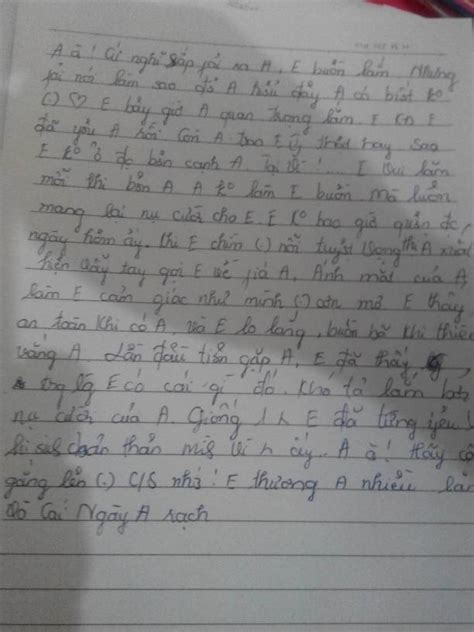 A à! Cứ nghĩ sắp phải xa A, E buồn lắm. Nhưng
phải nói làm sao để A hiểu đây. A có biết k°
(.) ♡ E bây giờ A quan trọng lắm E
đã yêu A rồi Còn A E thật hay sao
E k° ở đc bên cạnh A lại E vui lắm
mỗi khi bên A A k° làm E buồn mà luôn
mang lại nụ cười cho E. E k° bao giờ quên đc,
ngày hôm ấy. Khi E chìm (.) nỗi tuyệt vọng thì A xuất
hiện vẫy tay gọi E về phía A. Ánh mắt của A
làm E cảm giác như mình (.) cơn mơ E thấy
an toàn khi có A, và E lo lắng, buồn bã khi thiếu
vắng A Lần đầu tiên gặp A, E đã thấy,
trg lg E có cái gì đó. Khó tả lắm
nụ cười của A. Giống 1 E đã từng yêu
chân thần ấy... A à! Hãy cố
gắng lên (.) C/S nhá! E thương A nhiều lắm
Ngày A